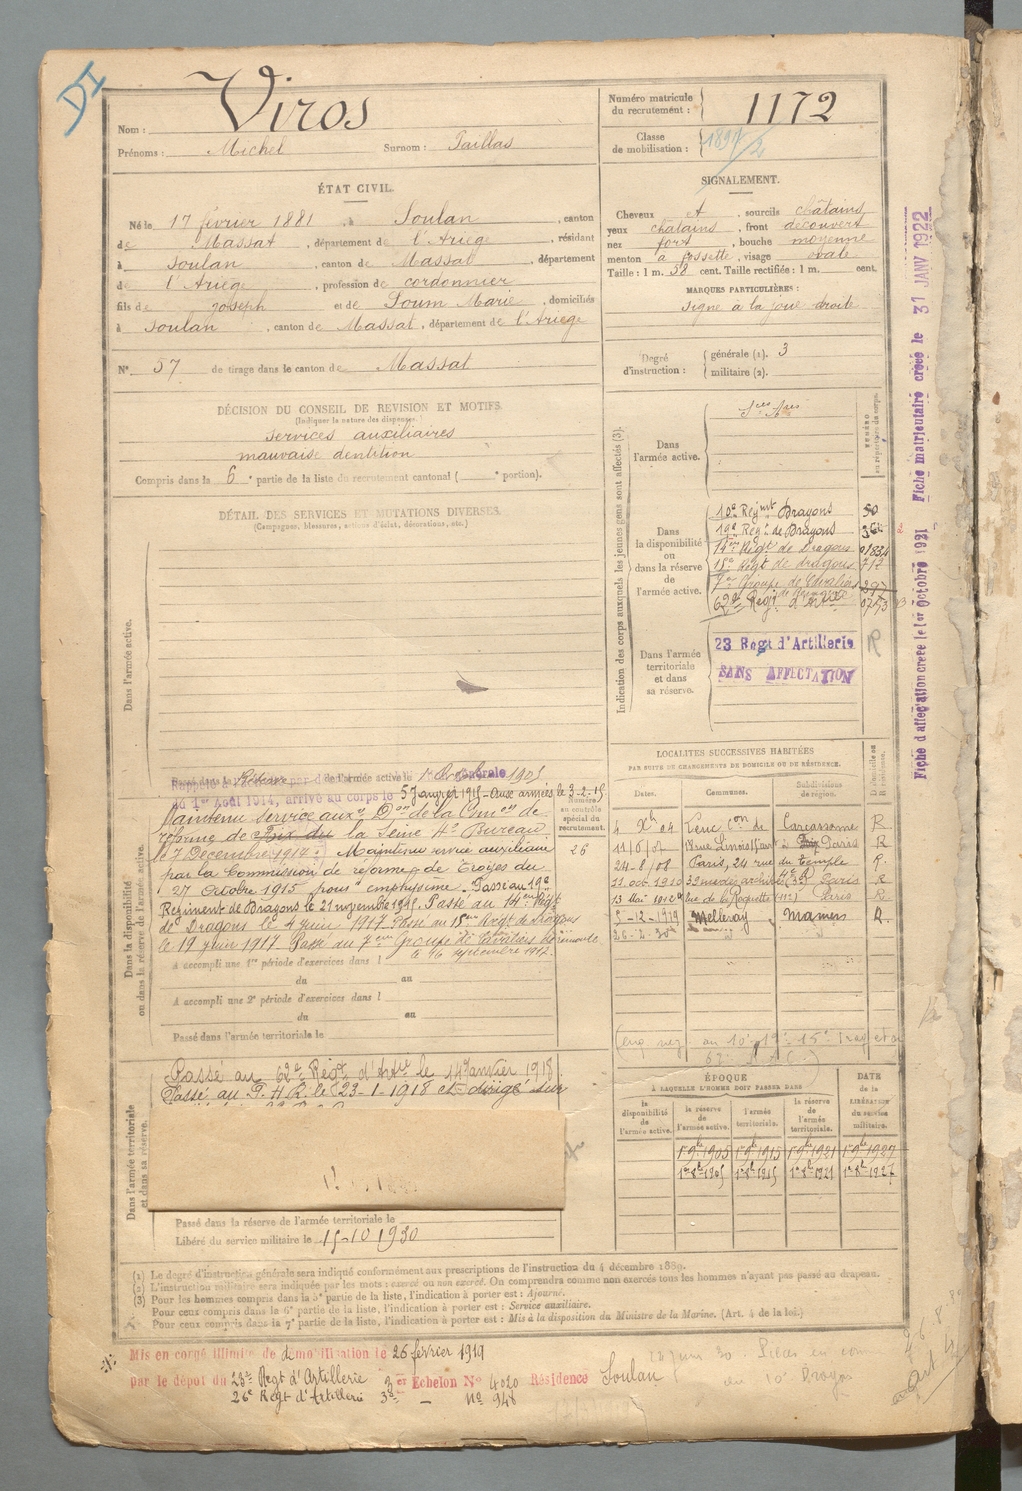 DI
Nom : Viros
Prénoms : Michel Surnom : Paillas
Numéro matricule du recrutement : 1172
Classe de mobilisation :
ÉTAT CIVIL.
Né le 17 février 1881, à Soulan, canton
de Massat, département de l'Ariège, résidant
à Soulan, canton de Massat, département
de l'Ariège, profession de cordonnier
fils de Joseph et de Soum Marie, domiciliés
à Soulan, canton de Massat, département de l'Ariège
N° 57 de tirage dans le canton de Massat
SIGNALEMENT.
Cheveux et, sourcils châtains
yeux châtains, front découvert
nez fort, bouche moyenne
menton à fossette, visage ovale
Taille : 1 m. 58 cent. Taille rectifiée : 1 m. cent.
MARQUES PARTICULIÈRES :
signe à la joue droite
Degré d'instruction : générale (1). 3
militaire (2).
DÉCISION DU CONSEIL DE REVISION ET MOTIFS.
(Indiquer la nature des dispenses.)
services auxiliaires
mauvaise dentition
Compris dans la 6e partie de la liste du recrutement cantonal ( e portion).
DÉTAIL DES SERVICES ET MUTATIONS DIVERSES.
(Campagnes, blessures, actions d'éclat, décorations, etc.)
Dans l'armée active.
Dans la disponibilité ou dans la réserve de l'armée active.
au 1er Août 1914, arrivé au corps le 5 Janvier 1915 - Aux armées le 3-2-15
Maintenu service auxre Don de la Comon de
réforme de la Seine 4e Bureau
le 7 Décembre 1914. Maintenu service auxiliaire
par la Commission de réforme de Troyes du
27 Octobre 1915 pour emphysème. Passé au 19e
Régiment de Dragons le 21 novembre 1915. Passé au 14ème Régt
de Dragons le 4 juin 1917. Passé au 15ème Régt de Dragons
le 19 juin 1917. Passé au 7ème Groupe de Cavaliers de remonte
le 16 décembre 1917.
A accompli une 1re période d'exercices dans l
du au
A accompli une 2e période d'exercices dans l
du au
Passé dans l'armée territoriale le
Numéro au contrôle spécial du recrutement.
26
Dans l'armée territoriale et dans sa réserve.
Passé au 62e Régt d'Artie le 14 Janvier 1918
Passé au P.H.R. le 23-1-1918 et dirigé sur
Passé dans la réserve de l'armée territoriale le
Libéré du service militaire le 15-10-1930
Indication des corps auxquels les jeunes gens sont affectés (3).
Dans l'armée active.
NUMÉRO au répertoire du corps.
Dans la disponibilité ou dans la réserve de l'armée active.
10e Régimt Dragons 50
19e Régt de Dragons
14me Régt de Dragons 01834
15e Régt de dragons 717
7e Groupe de Cavaliers 297
62e Régt d'Artie
Dans l'armée territoriale et dans sa réserve.
23 Regt d'Artillerie
SANS AFFECTATION
R
LOCALITÉS SUCCESSIVES HABITÉES
PAR SUITE DE CHANGEMENTS DE DOMICILE OU DE RÉSIDENCE.
Dates. Communes. Subdivisions de région. Domicile ou Résidence.
4 Xbre 04 Leuc Con de Carcassonne R
11/5/07 Paris R
24-8/08 Paris, 24 rue du temple R.
11 oct. 1910 33 rue des archives (3e) Paris R
13 Mai 1912 rue de la Roquette (11e) Paris R
5-12-1919 Melleray Mamers R.
26-2-30
ÉPOQUE
À LAQUELLE L'HOMME DOIT PASSER DANS
la disponibilité de l'armée active. la réserve de l'armée active. l'armée territoriale. la réserve de l'armée territoriale.
DATE de la LIBÉRATION du service militaire.
1er 9bre 1905 1er 9bre 1915 1er 9bre 1921 1er 9bre 1927
1er 8bre 1905 1er 8bre 1915 1er 8bre 1921 1er 8bre 1927
(1) Le degré d'instruction générale sera indiqué conformément aux prescriptions de l'instruction du 4 décembre 1889.
(2) L'instruction militaire sera indiquée par les mots : exercé ou non exercé. On comprendra comme non exercés tous les hommes n'ayant pas passé au drapeau.
(3) Pour les hommes compris dans la 5e partie de la liste, l'indication à porter est : Ajourné.
Pour ceux compris dans la 6e partie de la liste, l'indication à porter est : Service auxiliaire.
Pour ceux compris dans la 7e partie de la liste, l'indication à porter est : Mis à la disposition du Ministre de la Marine. (Art. 4 de la loi.)
Mis en congé illimité de démobilisation le 26 février 1919
par le dépôt du 23e Régt d'Artillerie 3er Echelon N° 4020 Résidence Soulan
26e Régt d'Artillerie 3e — N° 948
Fiche d'affectation créée le 1er Octobre 1921 Fiche matriculaire créée le 31 JANV 1922